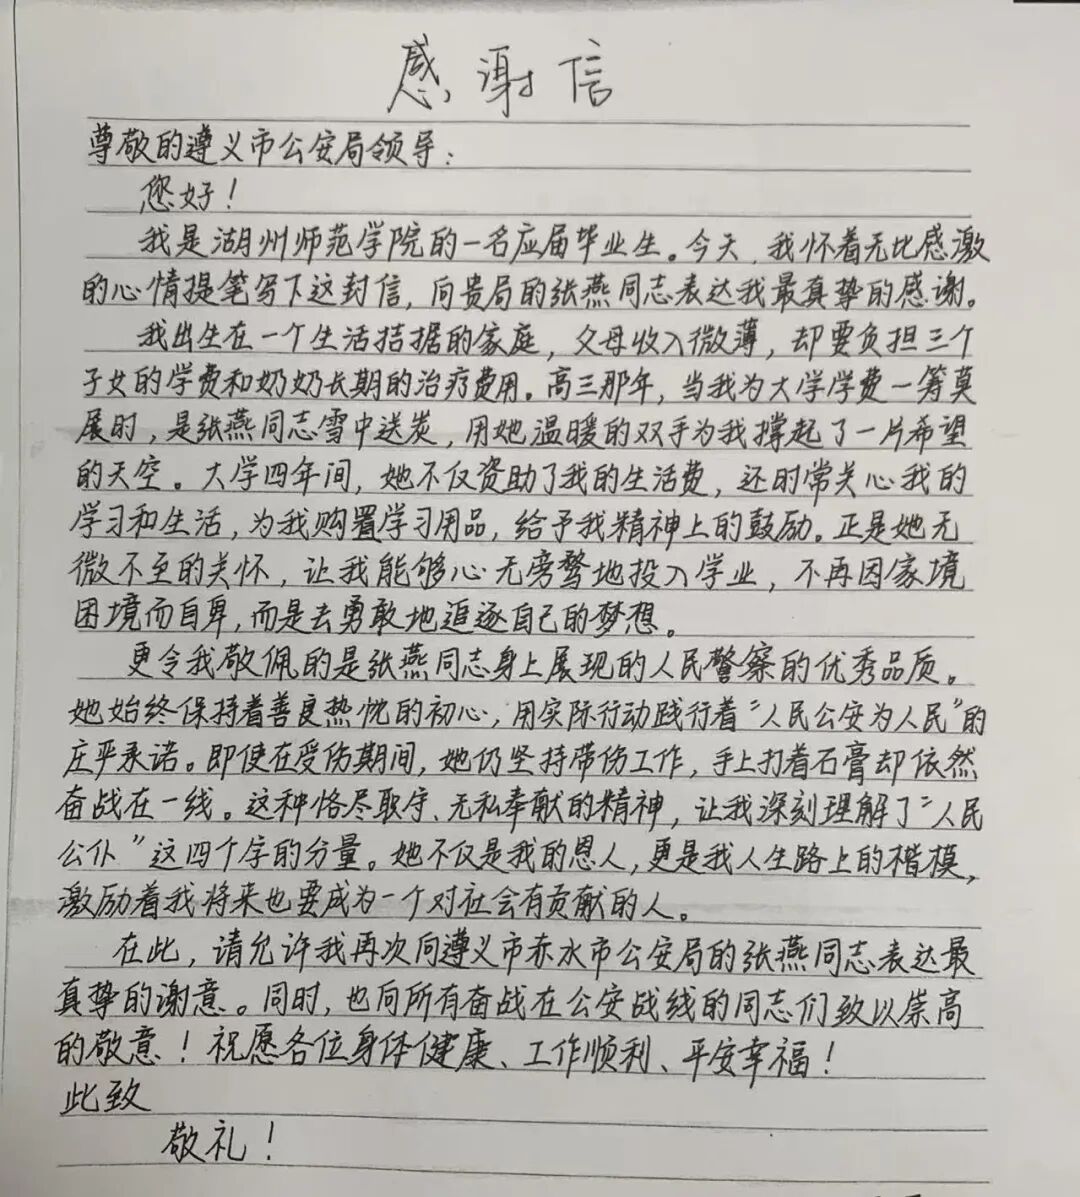 感谢信
尊敬的遵义市公安局领导：
您好！
我是湖州师范学院的一名应届毕业生。今天，我怀着无比感激
的心情提笔写下这封信，向贵局的张燕同志表达我最真挚的感谢。
我出生在一个生活拮据的家庭，父母收入微薄，却要负担三个
子女的学费和奶奶长期的治疗费用。高三那年，当我为大学学费一筹莫
展时，是张燕同志雪中送炭，用她温暖的双手为我撑起了一片希望
的天空。大学四年间，她不仅资助了我的生活费，还时常关心我的
学习和生活，为我购置学习用品，给予我精神上的鼓励。正是她无
微不至的关怀，让我能够心无旁骛地投入学业，不再因家境
困境而自卑，而是去勇敢地追逐自己的梦想。
更令我敬佩的是张燕同志身上展现的人民警察的优秀品质。
她始终保持着善良热忱的初心，用实际行动践行着“人民公安为人民”的
庄严承诺。即使在受伤期间，她仍坚持带伤工作，手上打着石膏却依然
奋战在一线。这种恪尽职守、无私奉献的精神，让我深刻理解了“人民
公仆”这四个字的分量。她不仅是我的恩人，更是我人生路上的楷模，
激励着我将来也要成为一个对社会有贡献的人。
在此，请允许我再次向遵义市赤水市公安局的张燕同志表达最
真挚的谢意。同时，也向所有奋战在公安战线的同志们致以崇高
的敬意！祝愿各位身体健康、工作顺利、平安幸福！
此致
敬礼！